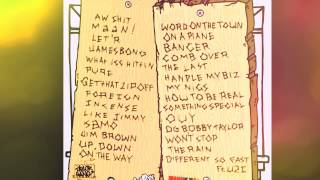 AW SHIT
MAAN!
LET'R
JAMES BOND
WHAT ISS HITTIN
PURE
GET THAT LIP OFF
FOREIGN
INCENSE
LIKE JIMMY
SAMO
JIM BROWN
UP, DOWN
ON THE WAY
WORD ON THE TOWN
ON A PLANE
BANGER
COMB OVER
THE LAST
HANDLE MY BIZ
MY NIGS
HOW TO BE REAL
SOMETHING SPECIAL
GUY
DG BOBBY TAYLOR
WONT STOP
THE RAIN
DIFFERENT SO FAST